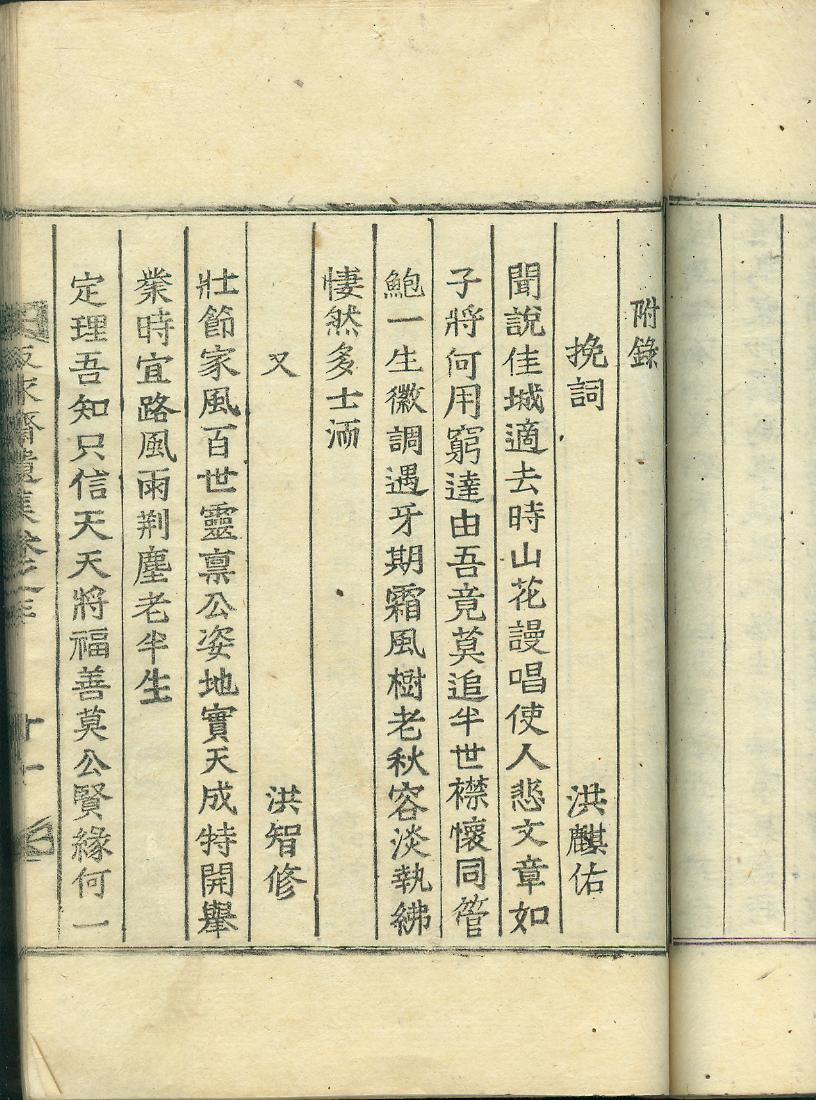 附錄
挽詞 洪麒佑
聞說佳城適去時山花謾唱使人悲文章如
子將何用窮達由吾竟莫追半世襟懷同管
鮑一生徽調遇牙期霜風樹老秋容淡執紼
悽然多士洏
又 洪智修
壯節家風百世靈禀公姿地實天成特開擧
業時宜路風雨荆塵老半生
定理吾知只信天天將福善莫公賢緣何一
齋遺集卷之三
十一